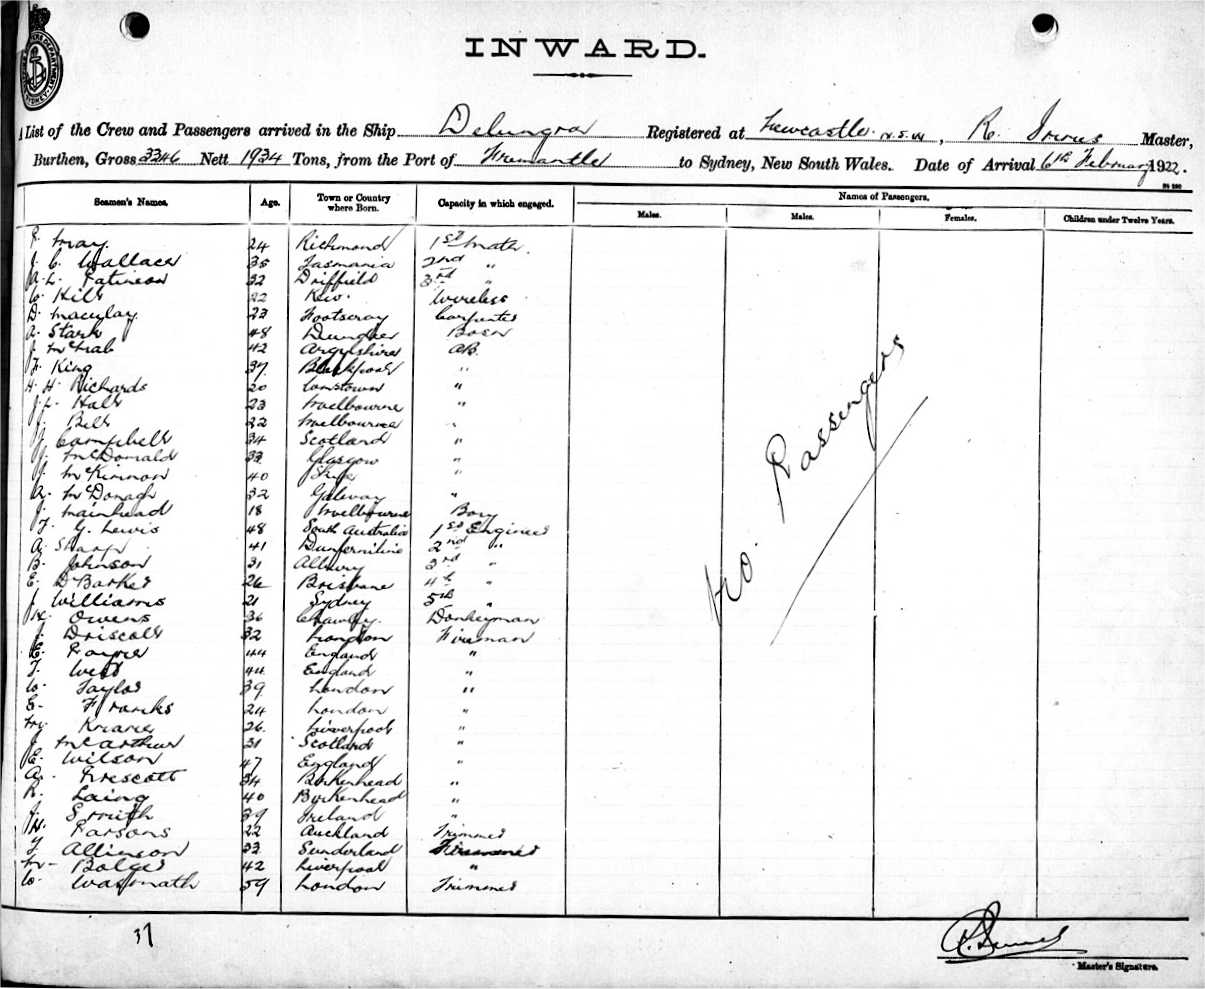 INWARD.
A List of the Crew and Passengers arrived in the Ship Delungra Registered at Newcastle. N.S.W, R. Master,
Burthen, Gross 3346 Nett 1934 Tons, from the Port of Fremantle to Sydney, New South Wales. Date of Arrival 6th February 1922.
Seamen's Names. Age. Town or Country where Born. Capacity in which engaged. Names of Passengers.
Males. Males. Females. Children under Twelve Years.
May. 24 Richmond 1st Mate.
J. C. Wallace 35 Tasmania 2nd "
32 Driffield 3rd "
W. Hill 22 Kew. Wireless
D. Maculay. 23 Footscray Carpenter
A. Stark 48 Dundee Bosn
J. McNab 42 Argylshire AB.
F. King 37 Blackpool "
H. H. Richards 20 "
J. L. Hall 23 Melbourne "
J. Bell 22 Melbourne "
J. Campbell 34 Scotland "
J. McDonald 33 Glasgow "
J. McKinnon 40 Skye "
A. McDonagh 32 Galway "
J. Mainhead 18 Melbourne Boy
T. G. Lewis 48 South Australia 1st Engineer
A. Sharp 41 Dunfermline 2nd "
B. Johnson 31 Albury 3rd "
E. D Barker 26 Brisbane 4th "
J. Williams 21 Sydney 5th "
H. Owens 36 Donkeyman
J. Driscoll 32 London Fireman
E. 44 England "
T. West 44 England "
W. Taylor 39 London "
E. Franks 24 London "
26 Liverpool "
J. McArthur 31 Scotland "
E. Wilson 47 England "
A. Prescott 34 Birkenhead "
R. Laing 40 Birkenhead "
J. Smith 39 Ireland "
H. Parsons 22 Auckland Trimmer
T Allinson 33 Sunderland
M Bolger 42 Liverpool "
W. Wasmath 59 London Trimmer
No. Passengers
37
Master's Signature.